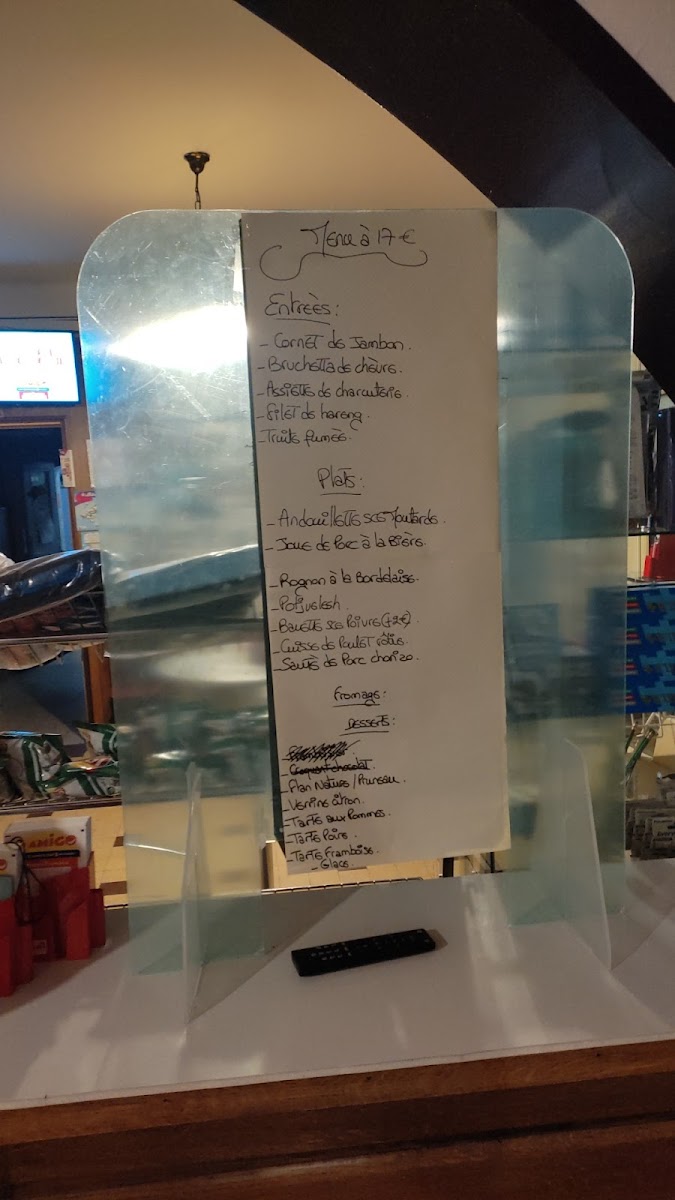 Menu à 17 €
Entreès:
- Cornet de Jambon.
- Bruchetta de chèvre.
- Assiette de charcuterie.
- Filet de hareng.
- Truite fumèe.
Plats:
- Andouillette sce Moutarde.
- Joue de Porc à la Bière.
- Rognon à la Bordelaise.
- Potjvelesh.
- Bavette sce Poivre (+2€).
- Cuisse de Poulet rôtie.
- Sautè de Porc chorizo.
Fromage:
Desserts:
- Croquant chocolat.
- Flan Nature / Pruneau.
- Verrine citron.
- Tarte aux Pommes.
- Tarte Poire.
- Tarte Framboise.
- Glace.
AMIGO